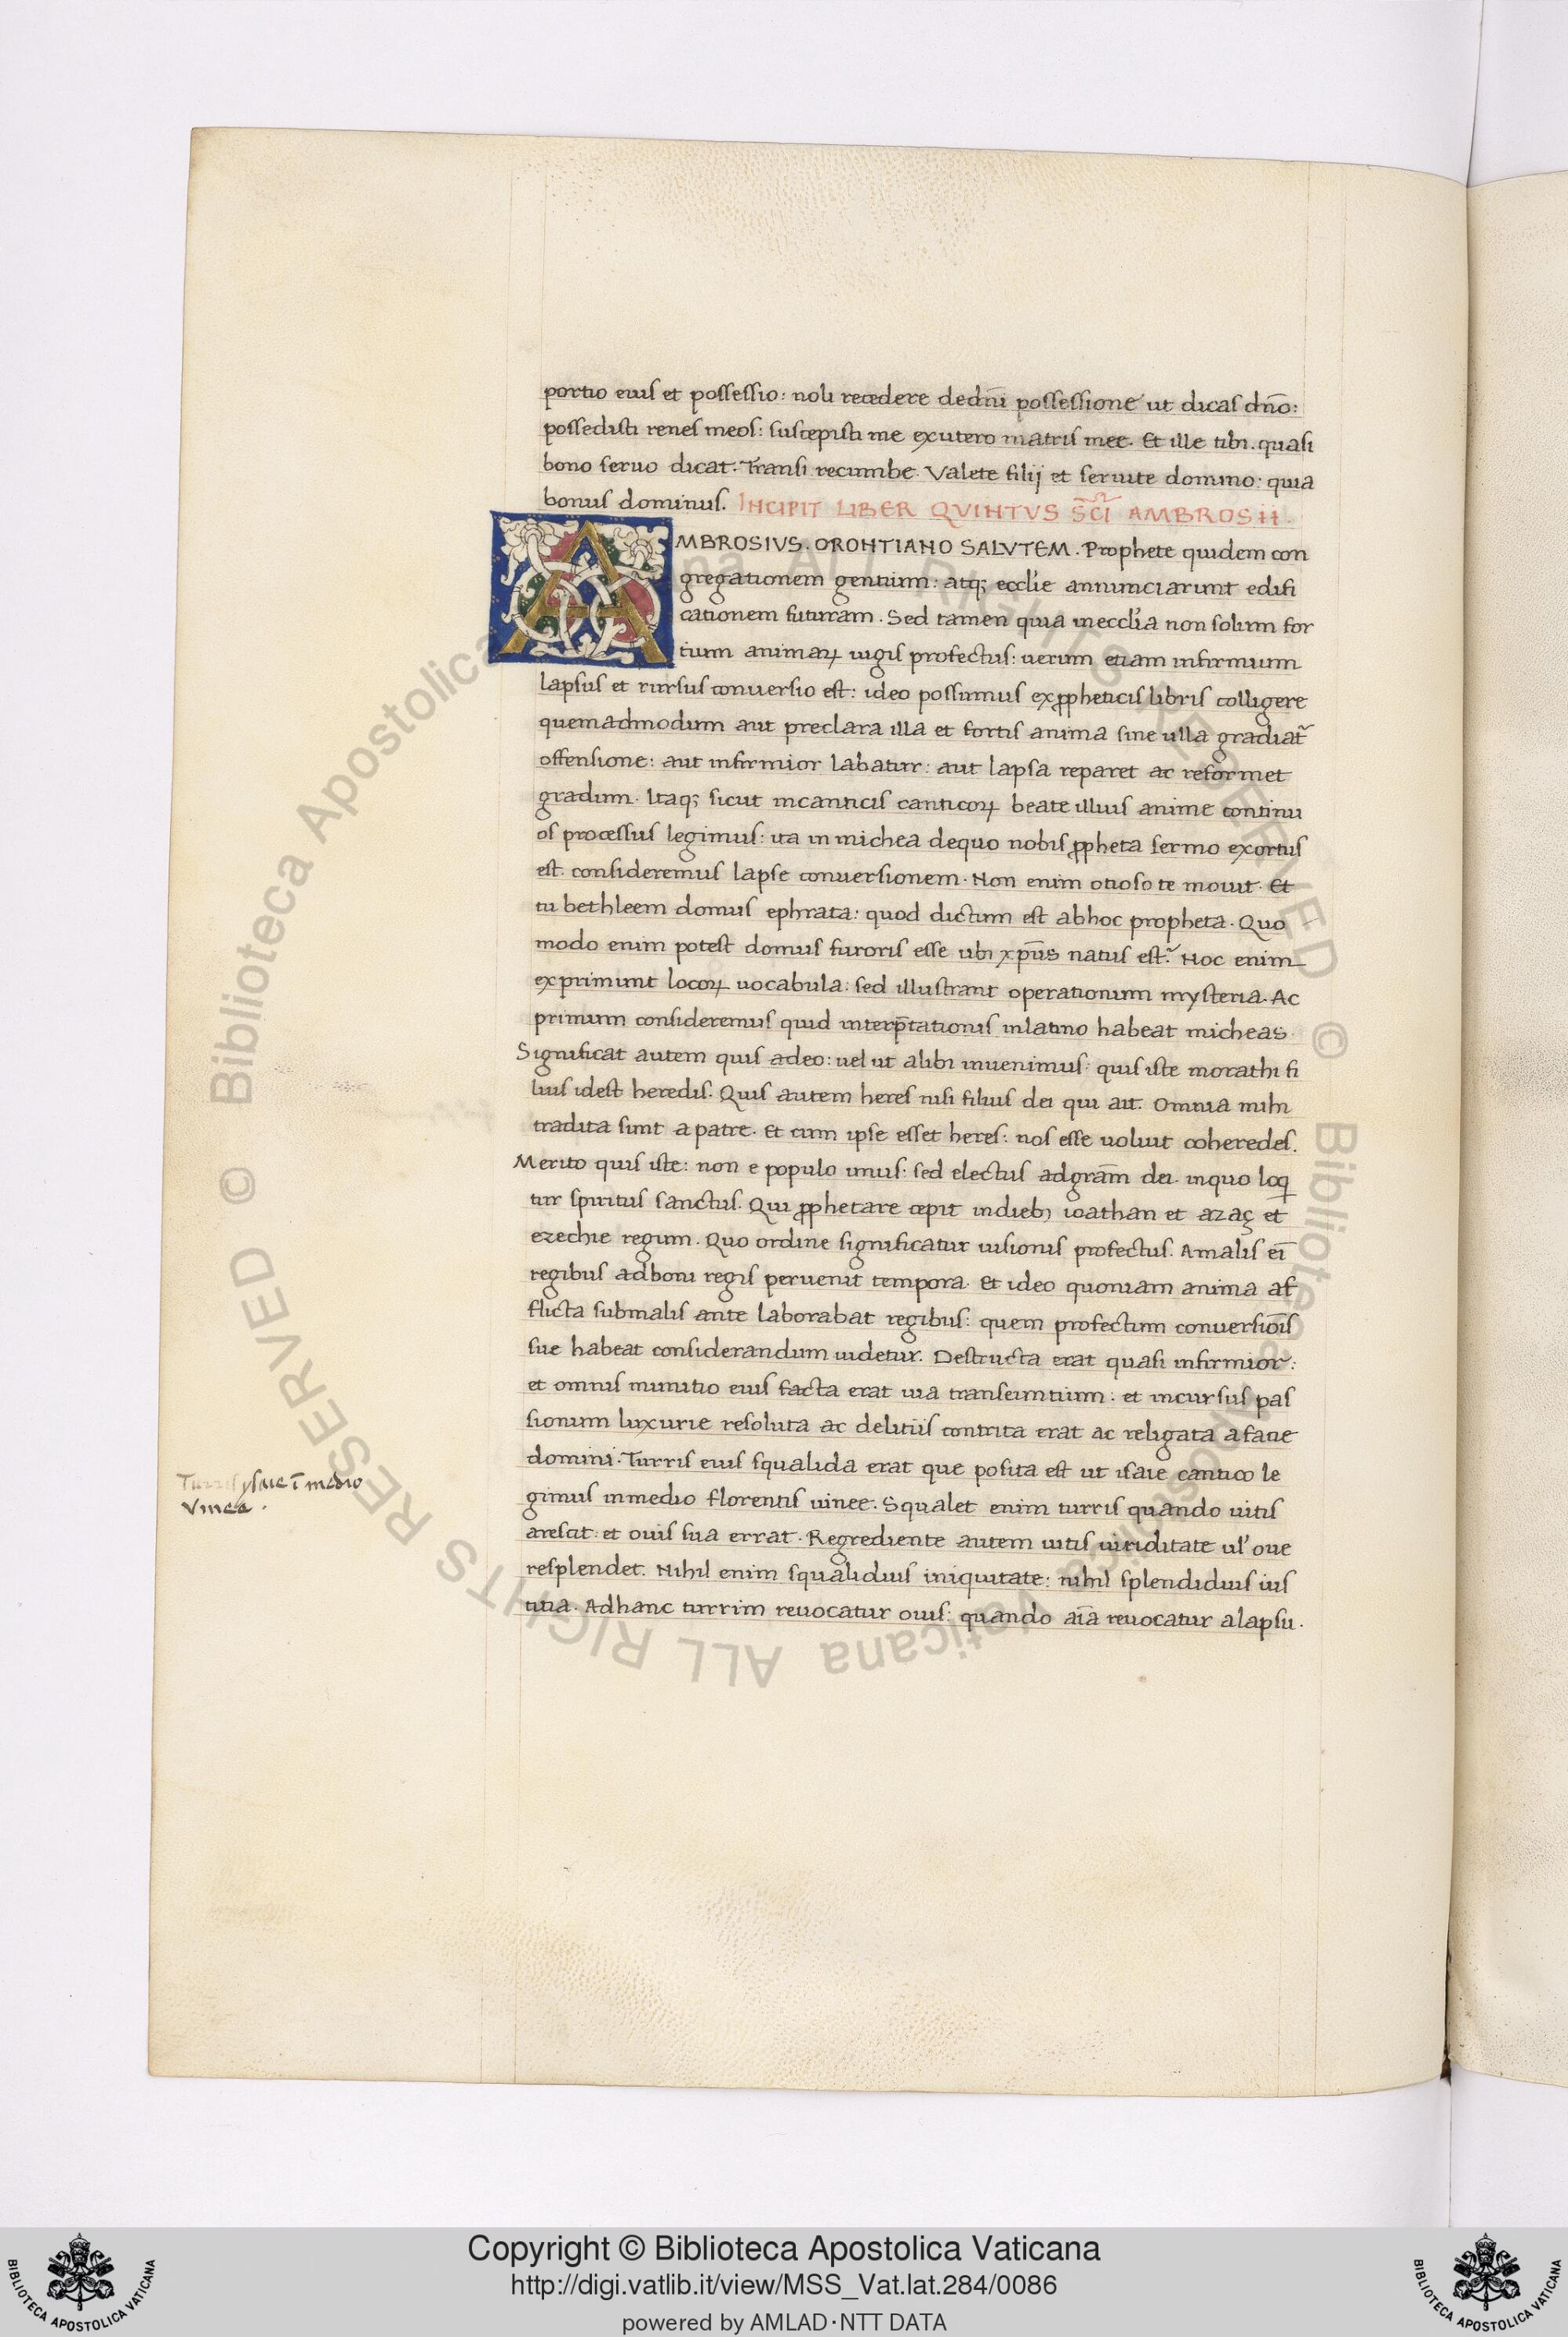 portio eius et possessio: noli recedere dedn̄i possessione ut dicas dn̄o:
possedisti renes meos: suscepisti me exutero matris mee. Et ille tibi. quasi
bono seruo dicat. Transi recumbe. Valete filij et seruite domino: quia
bonus dominus. INCIPIT LIBER QVINTVS SC̄I AMBROSII.
AMBROSIVS. ORONTIANO SALVTEM. Prophete quidem con
gregationem gentium: atq; eccl'ie annunciarunt edifi
cationem futuram. Sed tamen quia ineccl'ia non solum for
tium animaꝝ iugis profectus: uerum etiam infirmium
lapsus et rursus conuersio est: ideo possumus exꝓpheticis libris colligere
quemadmodum aut preclara illa et fortis anima sine ulla gradiat᷑
offensione: aut infirmior labatur: aut lapsa reparet ac reformet
gradum. Itaq; sicut incanticis canticoꝝ beate illius anime continu
os processus legimus: ita in michea dequo nobis ꝓpheta sermo exortus
est. consideremus lapse conuersionem. Non enim otioso te mouit. Et
tu bethleem domus ephrata: quod dictum est abhoc propheta. Quo
modo enim potest domus furoris esse ubi xp̄us natus est? Hoc enim
exprimunt locoꝝ uocabula: sed illustrant operationum mysteria. Ac
primum consideremus quid interp̄tationis inlatino habeat micheas.
Significat autem quis adeo: uel ut alibi inuenimus: quis iste morathi fi
lius idest heredis. Quis autem heres nisi filius dei qui ait. Omnia mihi
tradita sunt apatre. Et cum ipse esset heres: nos esse uoluit coheredes.
Merito quis iste: non e populo unus: sed electus adgrām dei. inquo loq̄
tur spiritus sanctus. Qui ꝓphetare cepit indieb; ioathan et azaç et
ezechie regum. Quo ordine significatur uisionis profectus. Amalis ei̅
regibus adboni regis peruenit tempora. Et ideo quoniam anima af
flicta submalis ante laborabat regibus: quem profectum conuersiōis
sue habeat considerandum uidetur. Destructa erat quasi infirmior:
et omnis munitio eius facta erat uia transeuntium: et incursus pas
sionum luxurie resoluta ac delitiis contrita erat ac religata afacie
domini. Turris eius squalida erat que posita est ut isaie cantico le
gimus inmedio florentis uinee. Squalet enim turris quando uitis
arescit: et ouis sua errat. Regrediente autem uitis uiriditate ul' oue
resplendet. Nihil enim squalidius iniquitate: nihil splendidius ius
titia. Adhanc turrim reuocatur ouis: quando aīa reuocatur alapsu.
Turris ysaie ī medio
Vinea.
Copyright © Biblioteca Apostolica Vaticana
http://digi.vatlib.it/view/MSS_Vat.lat.284/0086
powered by AMLAD·NTT DATA
BIBLIOTECA APOSTOLICA VATICANA
BIBLIOTECA APOSTOLICA VATICANA
© Biblioteca Apostolica Vaticana ALL RIGHTS RESERVED © Biblioteca Apostolica Vaticana ALL RIGHTS RESERVED